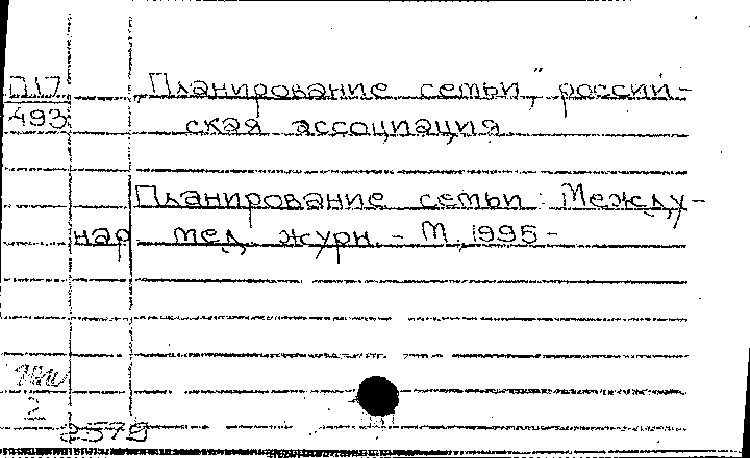 П17
493
„Планирование семьи," россий-
ская ассоциация.
Планирование семьи: Между-
нар. мед. журн. - М., 1995 -
2
2579